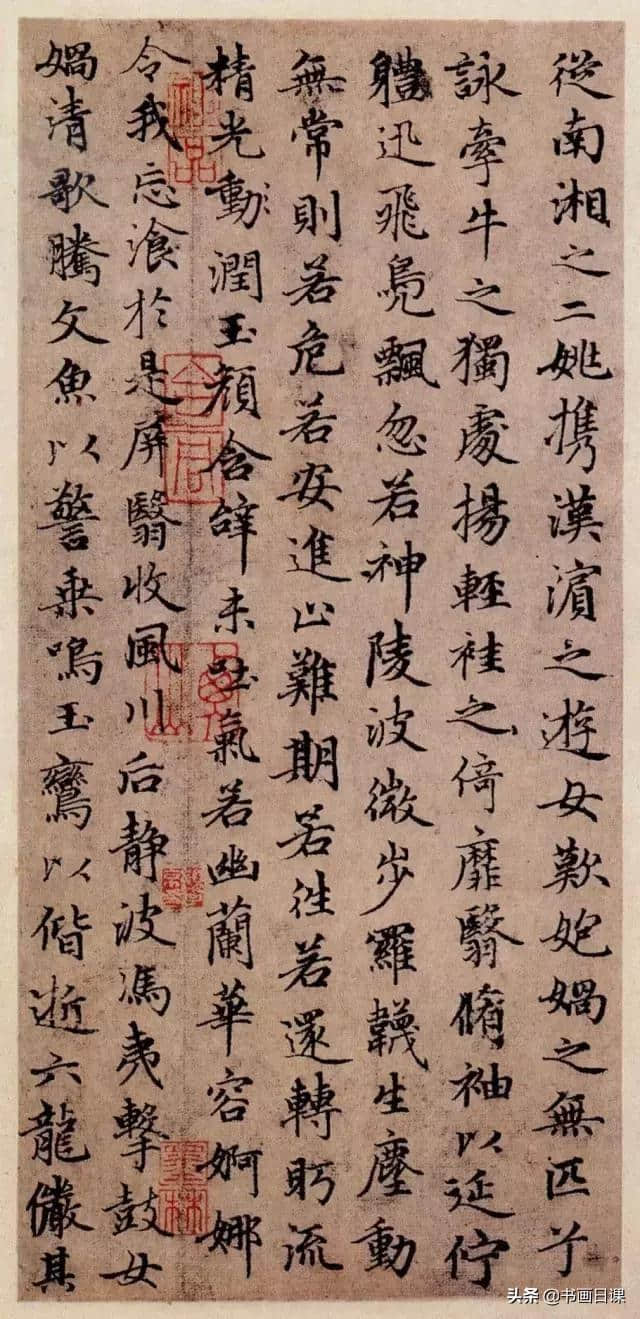 從南湘之二姚携漢濱之遊女歎㚿媧之無匹兮
詠牽牛之獨處揚輕袿之倚靡翳脩袖以延佇
軆迅飛鳧飄忽若神陵波微步羅韈生塵動
無常則若危若安進止難期若往若還轉眄流
精光動潤玉顏含辝未吐氣若幽蘭華容婀娜
令我忘飡於是屏翳收風川后静波馮夷擊鼓女
媧清歌騰文魚以警乗鳴玉鸞以偕逝六龍儼其
神品
墨林
头条 @书画日课